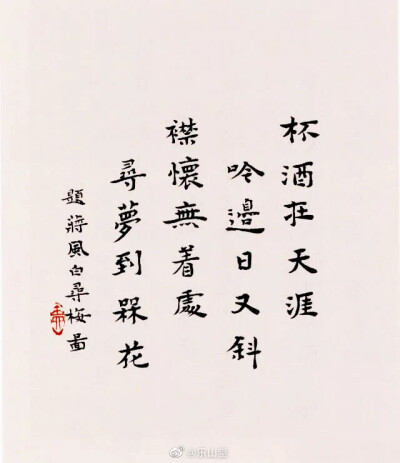 杯酒在天涯
吟邊日又斜
襟懷無着處
尋夢到槑花
題蔣風白尋梅圖
@乐山堂